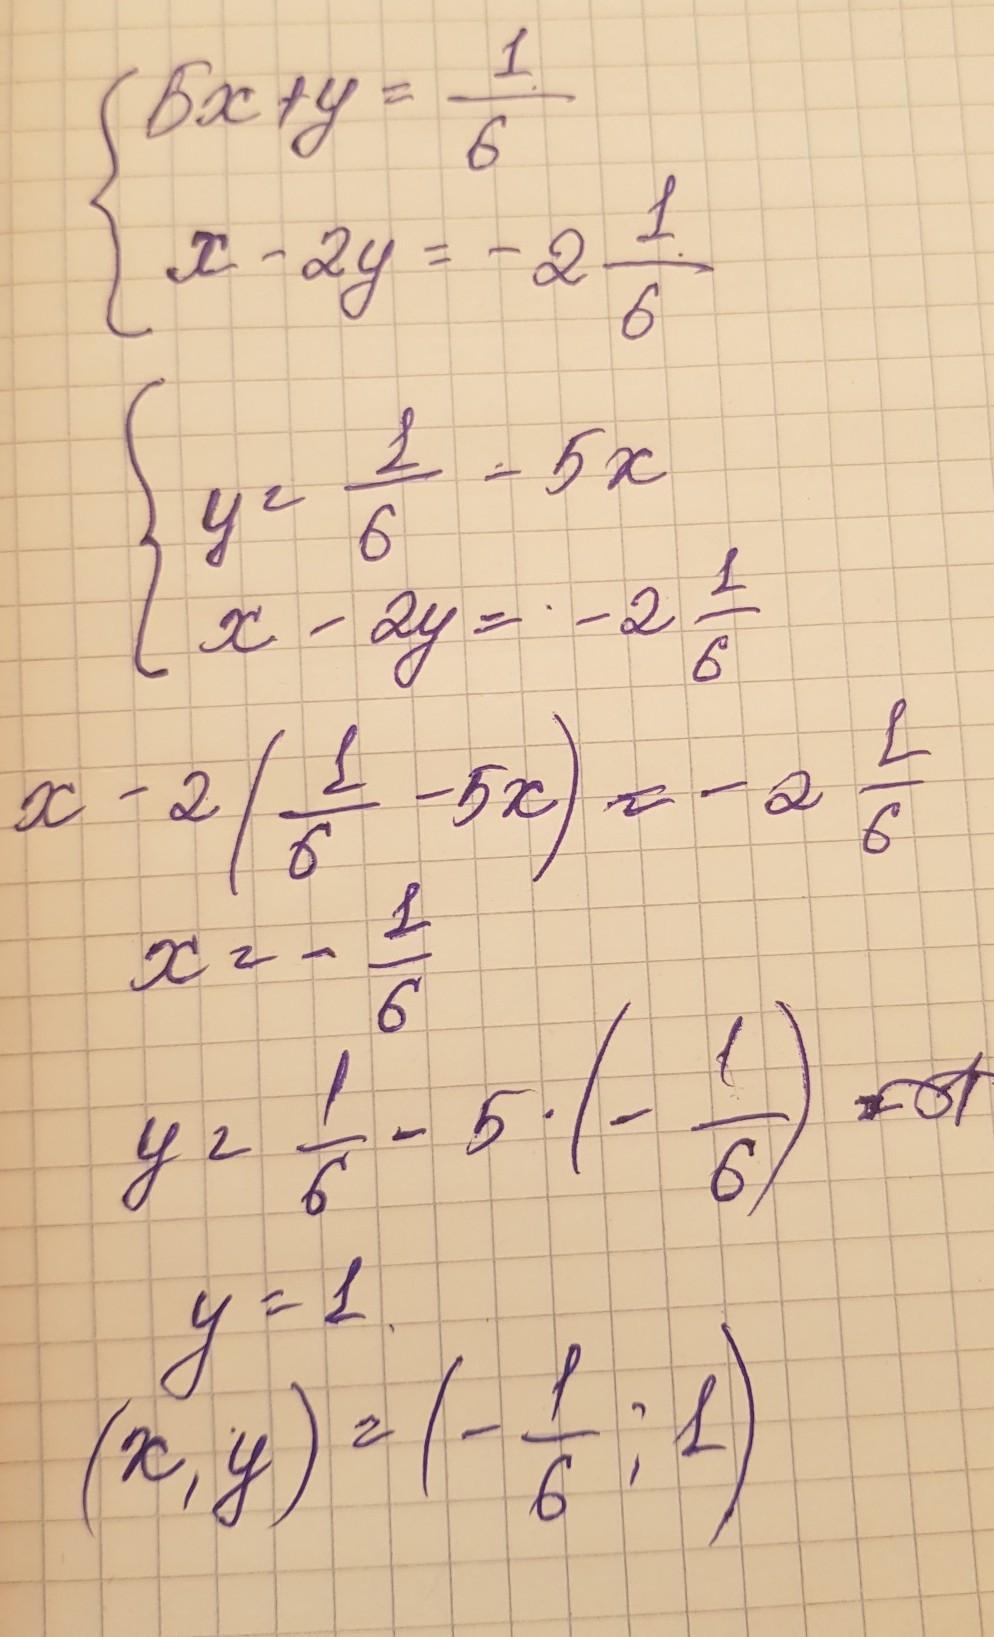 5x + y = 1/6
x - 2y = - 2 1/6
y = 1/6 - 5x
x - 2y = - 2 1/6
x - 2 (1/6 - 5x) = - 2 1/6
x = - 1/6
y = 1/6 - 5 · (- 1/6)
y = 1
(x, y) = (- 1/6 ; 1)